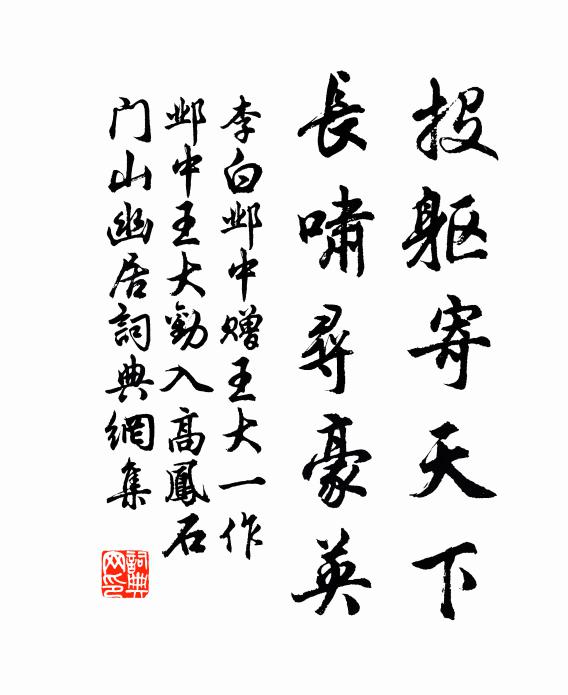 投躯寄天下
長嘯尋豪英
李白邺中赠王大一作
邺中王大勸入高鳳石
门山幽居詞典網集
詞典
网印